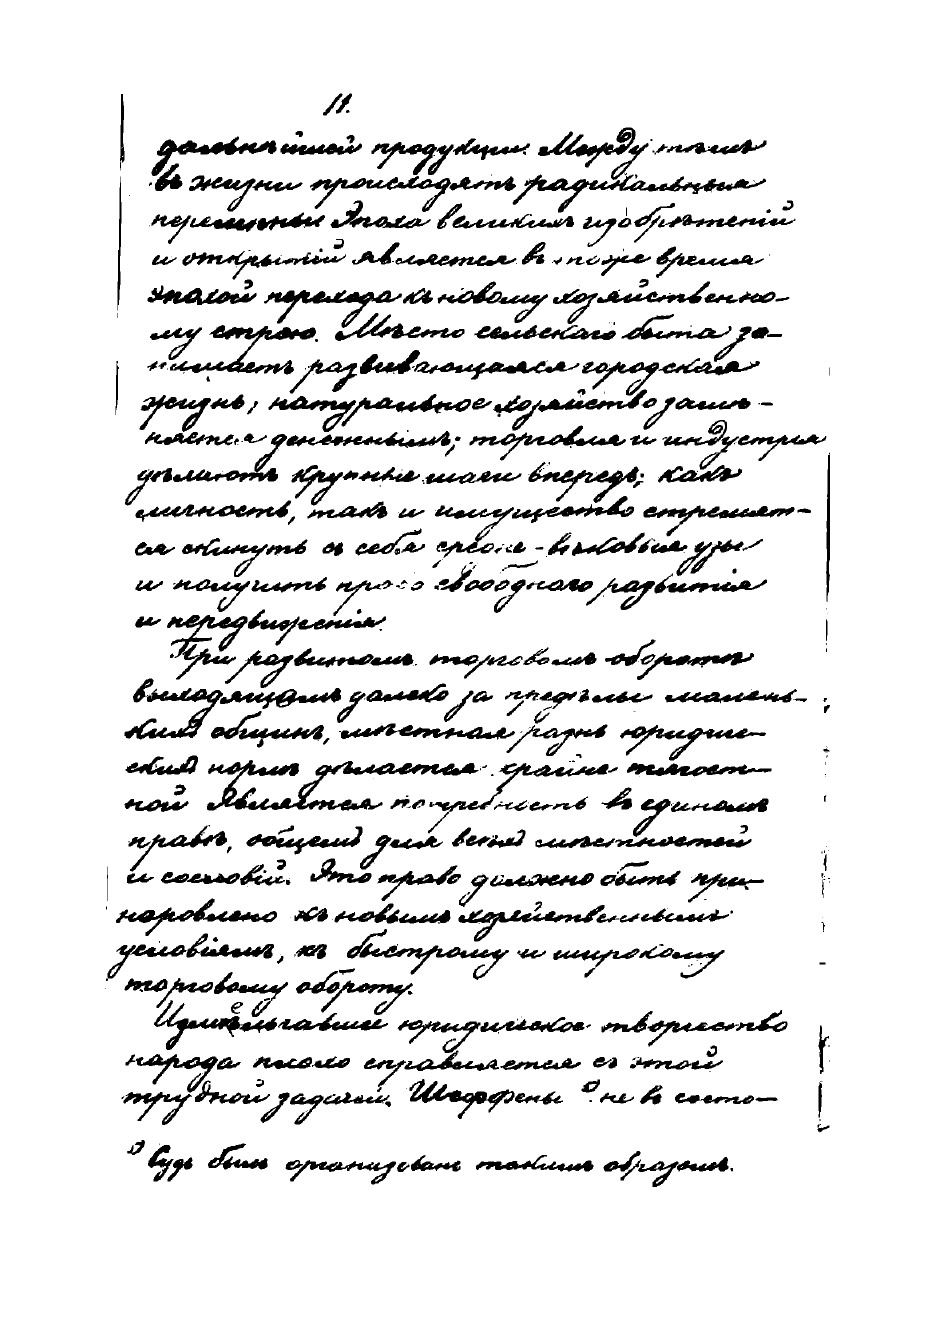 11.
дальнѣйшей продукции. Между тѣмъ
въ жизни происходятъ радикальныя
перемѣны Эпоха великихъ изобрѣтеній
и открытій является въ тоже время
эпохой перехода къ новому хозяйственно-
му строю. Мѣсто сельскаго быта за-
нимаетъ развивающаяся городская
жизнь; натуральное хозяйство замѣ-
няется денежнымъ; торговля и индустрія
дѣлаютъ крупные шаги впередъ; какъ
личность, такъ и имущество стремят-
ся скинуть съ себя средне-вѣковыя узы
и получить право свободнаго развитія
и передвиженія.
При развитомъ торговомъ оборотѣ
выходящемъ далеко за предѣлы малень-
кихъ общинъ, мѣстная рознь юридиче-
скихъ нормъ дѣлается крайне тягост-
ной Является потребность въ единомъ
правѣ, общемъ для всѣхъ мѣстностей
и сословій. Это право должно быть при-
норовлено къ новымъ хозяйственнымъ
условіямъ, къ быстрому и широкому
торговому обороту.
Измельчавшее юридическое творчество
народа плохо справляется съ этой
трудной задачей. Шеффены ¹) не въ состо-
¹) Судъ былъ организованъ такимъ образомъ.